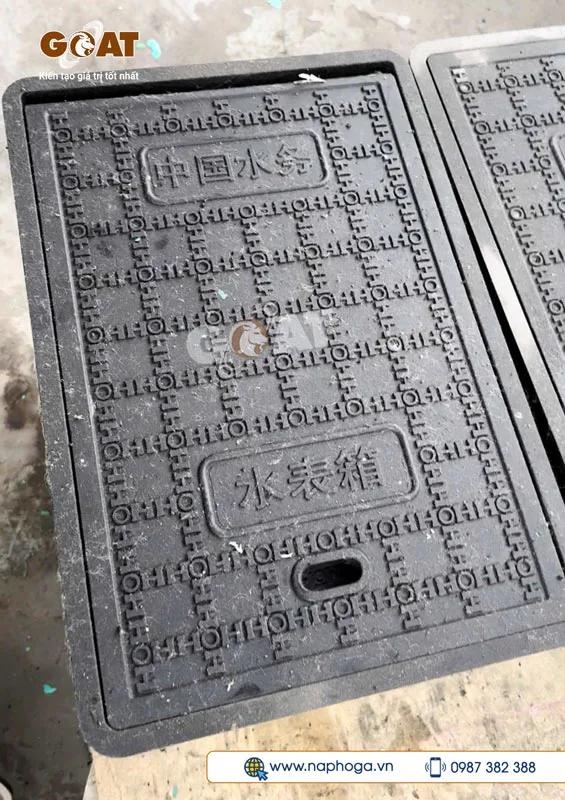 GOAT
Kiến tạo giá trị tốt nhất
中国水务
GOAT
水表箱
www.naphoga.vn
0987 382 388